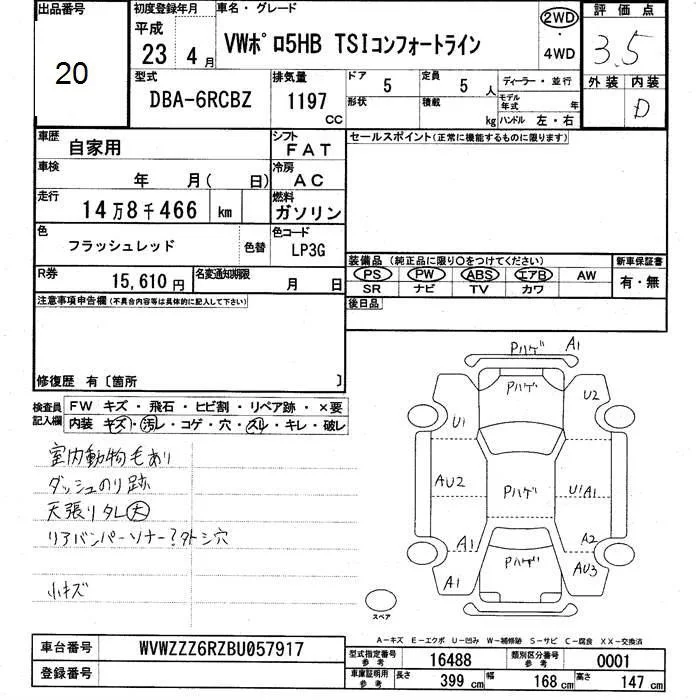 出品番号 初度登録年月 車名・グレード 2WD 評価点
20 平成 23 4月 VWポロ5HB TSIコンフォートライン ・ 4WD 3.5
型式 排気量 ドア 定員 ディーラー・並行 外装 内装
DBA-6RCBZ 1197 CC 5 5人 モデル年式 年 D
形状 積載 kg ハンドル 左・右
車歴 自家用 シフト FAT セールスポイント(正常に機能するものに限ります)
車検 年 月( 日) 冷房 AC
走行 14万8千466 km 燃料 ガソリン
色 フラッシュレッド 色替 色コード LP3G
装備品(純正品に限り○をつけてください) 新車保証書
PS PW ABS エアB AW 有・無
SR ナビ TV カワ
R券 15,610円 名変通知期限 月 日
後日品
注意事項申告欄(不具合内容等は具体的に記入して下さい)
修復歴 有〔箇所 〕
検査員記入欄 FW キズ・飛石・ヒビ割・リペア跡・×要
内装 キズ・汚レ・コゲ・穴・スレ・キレ・破レ
室内動物毛あり
ダッシュのり跡
天張りタレ大
リアバンパーソナー?タトシ穴
小キズ
Pハゲ A1
Pハゲ U2
U1
AU2 Pハゲ U1A1
A1 A2
A1 Pハゲ AU3
スペア
A-キズ E-エクボ U-凹み W-補修跡 S-サビ C-腐食 XX-交換済
車台番号 WVWZZZ6RZBU057917
登録番号
型式指定番号 参考 16488 類別区分番号 参考 0001
車庫証明用 参考 長さ 399 cm 幅 168 cm 高さ 147 cm